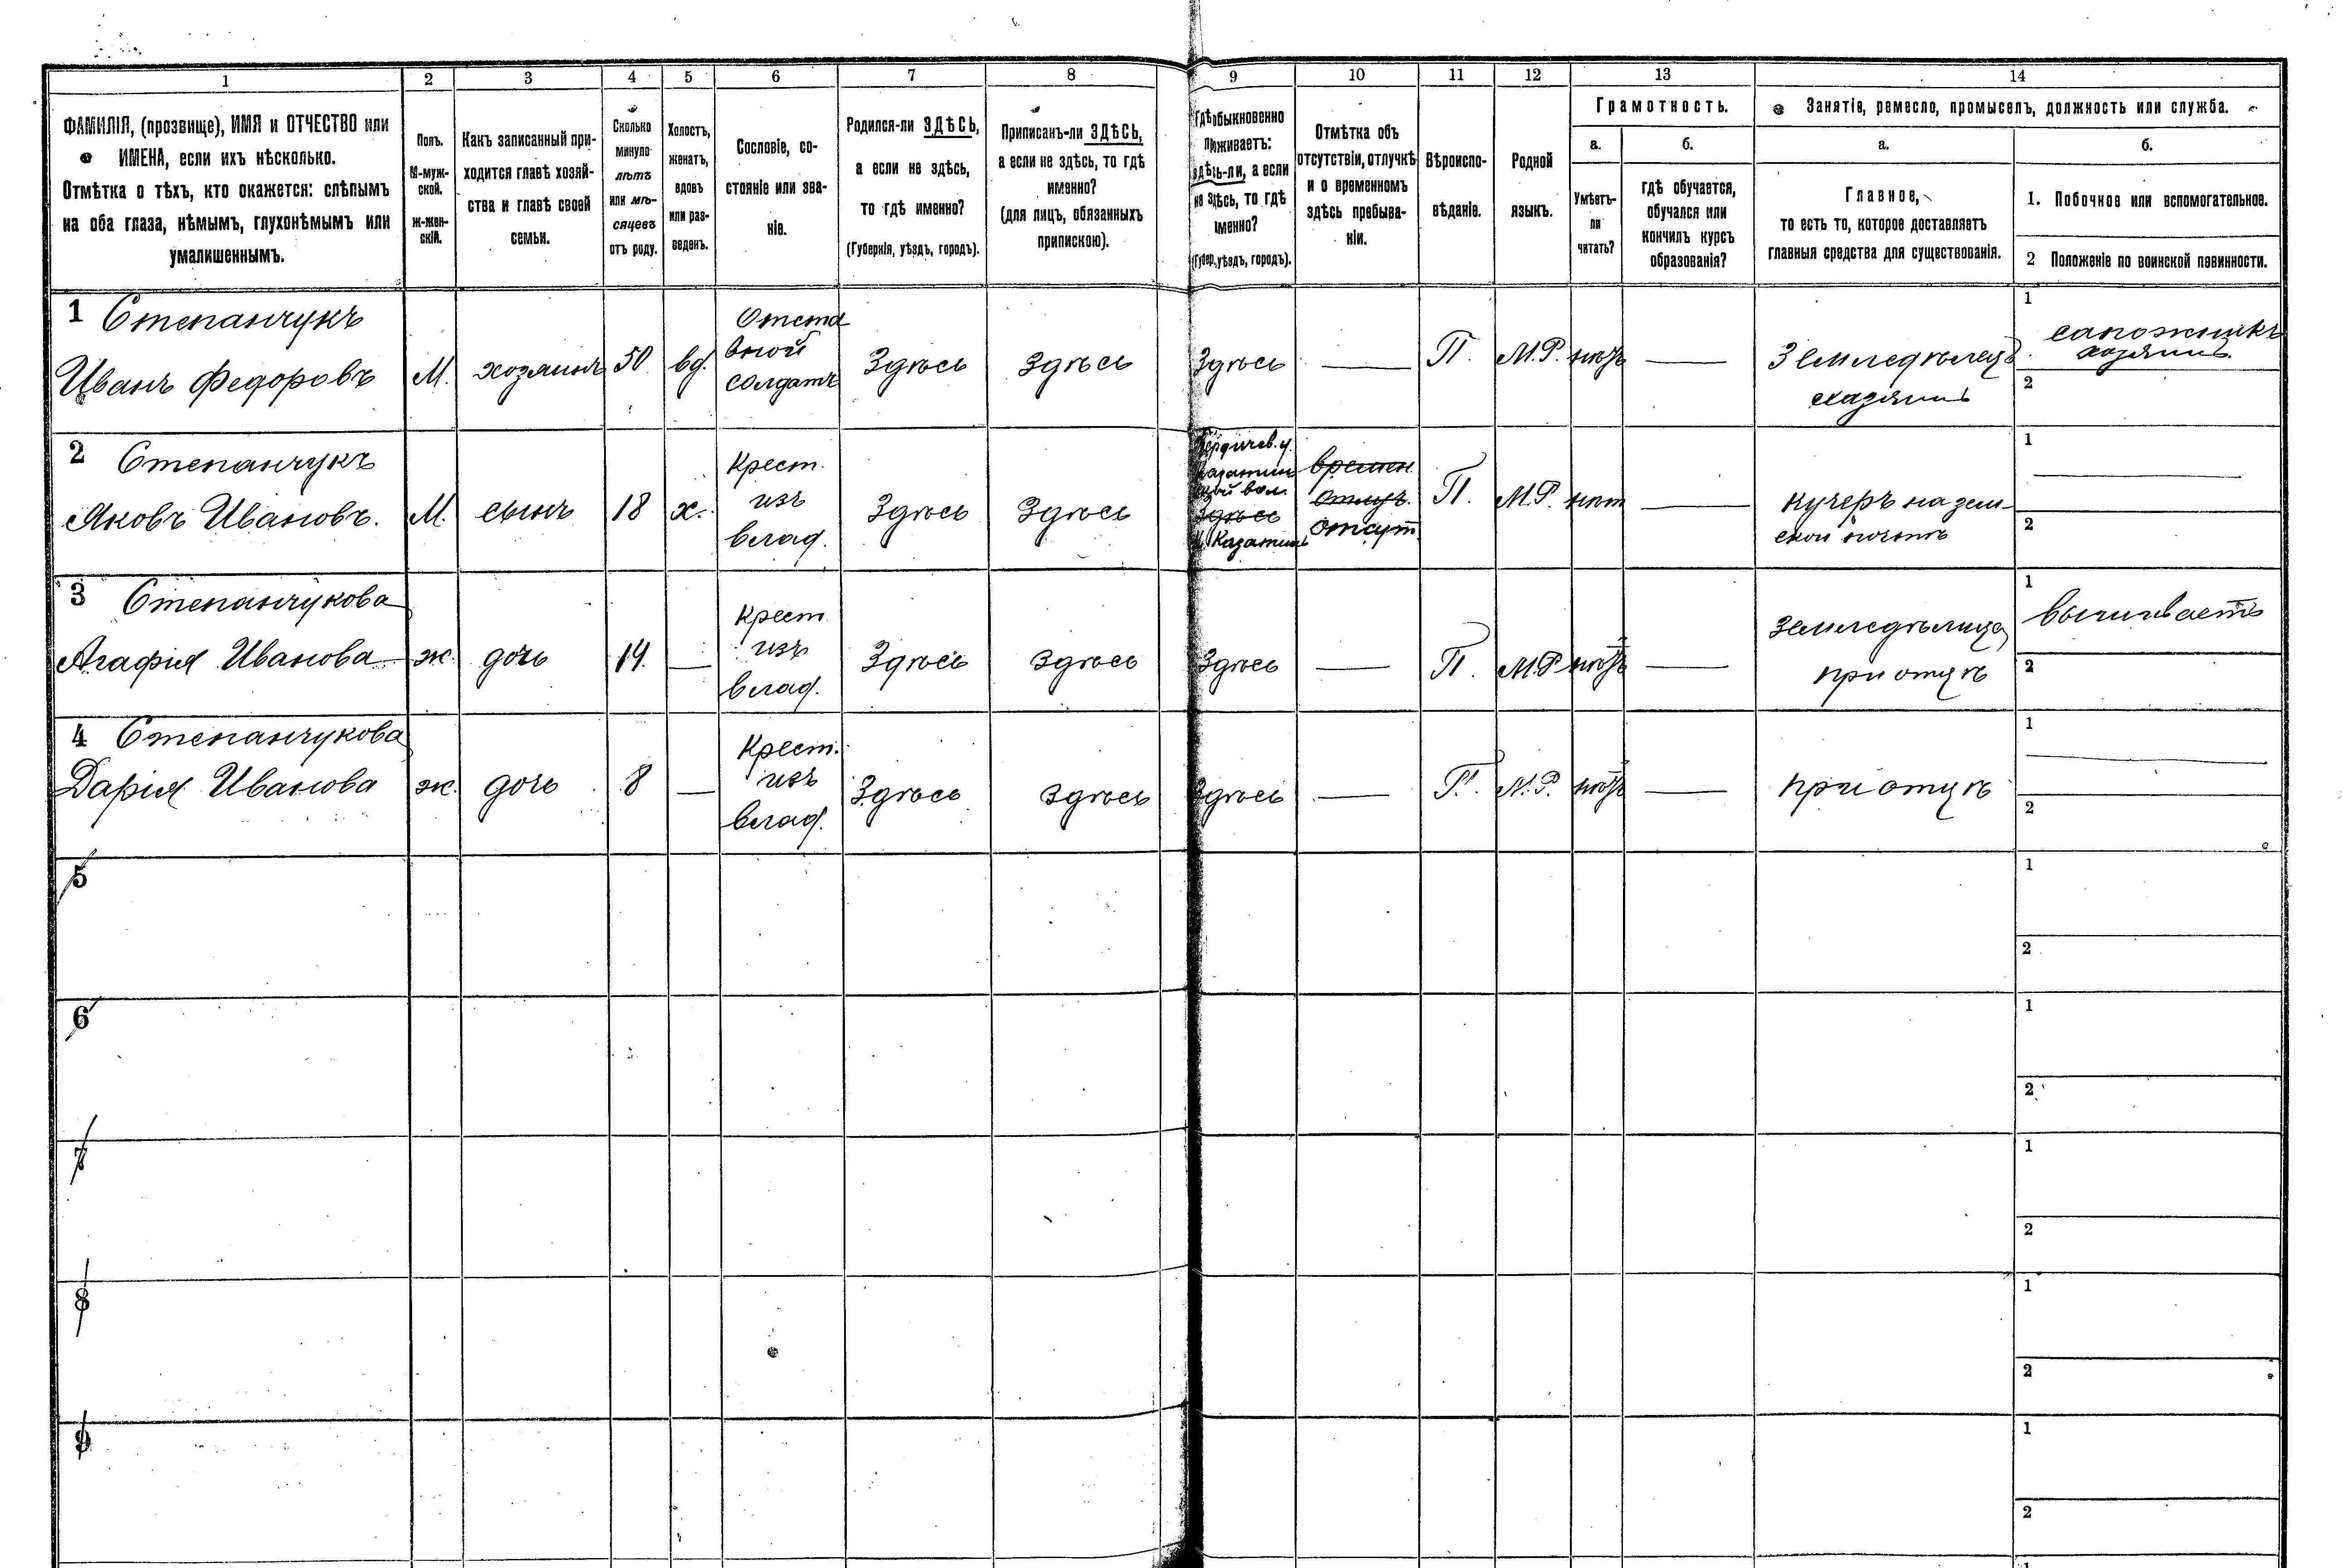 1 2 3 4 5 6 7 8 9 10 11 12 13 14
ФАМИЛІЯ, (прозвище), ИМЯ и ОТЧЕСТВО или
ИМЕНА, если ихъ нѣсколько.
Отмѣтка о тѣхъ, кто окажется: слѣпымъ
на оба глаза, нѣмымъ, глухонѣмымъ или
умалишеннымъ.
Полъ.
М-муж-
ской.
ж-жен-
скій.
Какъ записанный при-
ходится главѣ хозяй-
ства и главѣ своей
семьи.
Сколько
минуло
лѣтъ
или мѣ-
сяцевъ
отъ роду.
Холостъ,
женатъ,
вдовъ
или раз-
веденъ.
Сословіе, со-
стояніе или зва-
ніе.
Родился-ли ЗДѢСЬ,
а если не здѣсь,
то гдѣ именно?
(Губернія, уѣздъ, городъ).
Приписанъ-ли ЗДѢСЬ,
а если не здѣсь, то гдѣ
именно?
(для лицъ, обязанныхъ
припискою).
Гдѣ обыкновенно
проживаетъ:
здѣсь-ли, а если
не здѣсь, то гдѣ
именно?
(Губер., уѣздъ, городъ).
Отмѣтка объ
отсутствіи, отлучкѣ
и о временномъ
здѣсь пребыва-
ніи.
Вѣроиспо-
вѣданіе.
Родной
языкъ.
Грамотность.
а.
Умѣетъ-
ли
читать?
б.
гдѣ обучается,
обучался или
кончилъ курсъ
образованія?
Занятіе, ремесло, промыселъ, должность или служба.
а.
Главное,
то есть то, которое доставляетъ
главныя средства для существованія.
б.
1. Побочное или вспомогательное.
2 Положеніе по воинской повинности.
1 Степанчукъ
Иванъ Федоровъ
М.
хозяинъ
50
вд.
Отста
вной
солдатъ
Здѣсь
Здѣсь
Здѣсь
П.
М.Р.
нѣтъ
Земледѣлецъ
хазяинъ
1
сапожникъ
хозяинъ
2
2 Степанчукъ
Яковъ Ивановъ.
М.
сынъ
18
х.
Крест.
изъ
влад.
Здѣсь
Здѣсь
Бердичев. у.
Казатин
ской вол.
Здѣсь
Казатинъ
времен.
отлуч.
отсут
П.
М.Р.
нѣт
кучеръ на зем-
ской почтѣ
1
2
3 Степанчукова
Агафія Иванова
ж.
дочь
14.
Крест
изъ
влад.
Здѣсь
Здѣсь
Здѣсь
П.
М.Р
нѣтъ
Земледѣлица
при отцѣ
1
вышиваетъ
2
4 Степанчукова
Дарія Иванова
ж.
дочь
8
Крест.
изъ
влад.
Здѣсь
Здѣсь
Здѣсь
П.
М.Р.
нѣтъ
при отцѣ
1
2
5
1
2
6
1
2
7
1
2
8
1
2
9
1
2